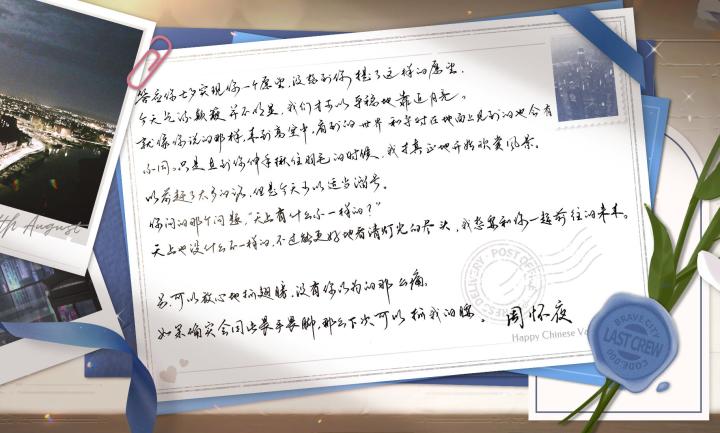 答应你七夕实现你一个愿望，没想到你提了这样的愿望。
今天气流颠簸并不明显，我们才可以平稳地靠近月亮。
就像你说的那样，来到高空中，看到的世界和平时在地面上见到的也会有
不同。只是直到你伸手揪住羽毛的时候，我才真正地开始欣赏风景。
以前赶了太多的路，但是今天可以适当
你问的那个问题，“天上有什么不一样的？”
天上也没什么不一样的，不过能更好地看清灯光的尽头，我想要和你一起前往的未来。
另，可以放心地抓翅膀，没有你以为的那么痛。
如果确实会因此畏手畏脚，那么下次可以抓我的腰。 周怀夜
4th August
DELIVERY POST OFFICE
Happy Chinese Va
BRAVE CITY
LAST CREW
CODE:000